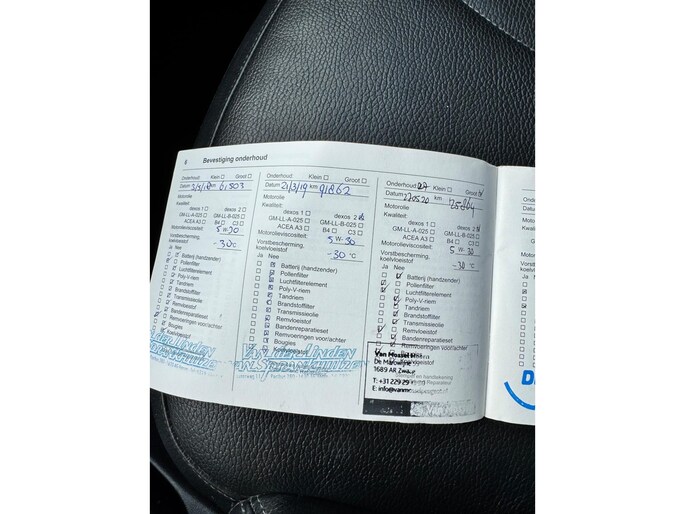 8 Bevestiging onderhoud
Onderhoud: Klein Groot
Datum 3/5/18 km 61503
Motorolie
Kwaliteit:
dexos 1 dexos 2
GM-LL-A-025 GM-LL-B-025
ACEA A3 B4 C3
Motorolieviscositeit:
5W-30
Vorstbescherming, koelvloeistof
-30c
Ja Nee
Batterij (handzender)
Pollenfilter
Luchtfilterelement
Poly-V-riem
Tandriem
Brandstoffilter
Transmissieolie
Remvloeistof
Bandenreparatieset
Remvoeringen voor/achter
Bougies
Koelvloeistof
Onderhoud: Klein Groot
Datum 21/3/19 km 91862
Motorolie
Kwaliteit:
dexos 1 dexos 2
GM-LL-A-025 GM-LL-B-025
ACEA A3 B4 C3
Motorolieviscositeit:
5W-30
Vorstbescherming, koelvloeistof
-30 °C
Ja Nee
Batterij (handzender)
Pollenfilter
Luchtfilterelement
Poly-V-riem
Tandriem
Brandstoffilter
Transmissieolie
Remvloeistof
Bandenreparatieset
Remvoeringen voor/achter
Bougies
Koelvloeistof
VAN DER LINDEN
VAN SPRANKHUIZEN
Onderhoud: Klein Groot
Datum 220520 km 125864
Motorolie
Kwaliteit:
dexos 1 dexos 2
GM-LL-A-025 GM-LL-B-025
ACEA A3 B4 C3
Motorolieviscositeit:
5W-30
Vorstbescherming, koelvloeistof
-30 °C
Ja Nee
Batterij (handzender)
Pollenfilter
Luchtfilterelement
Poly-V-riem
Tandriem
Brandstoffilter
Transmissieolie
Remvloeistof
Bandenreparatieset
Remvoeringen voor/achter
Van Mossel
De Marowijne
1689 AR Zwaag
T: +31 229 29
E: info@vanmosselpeugeot.nl